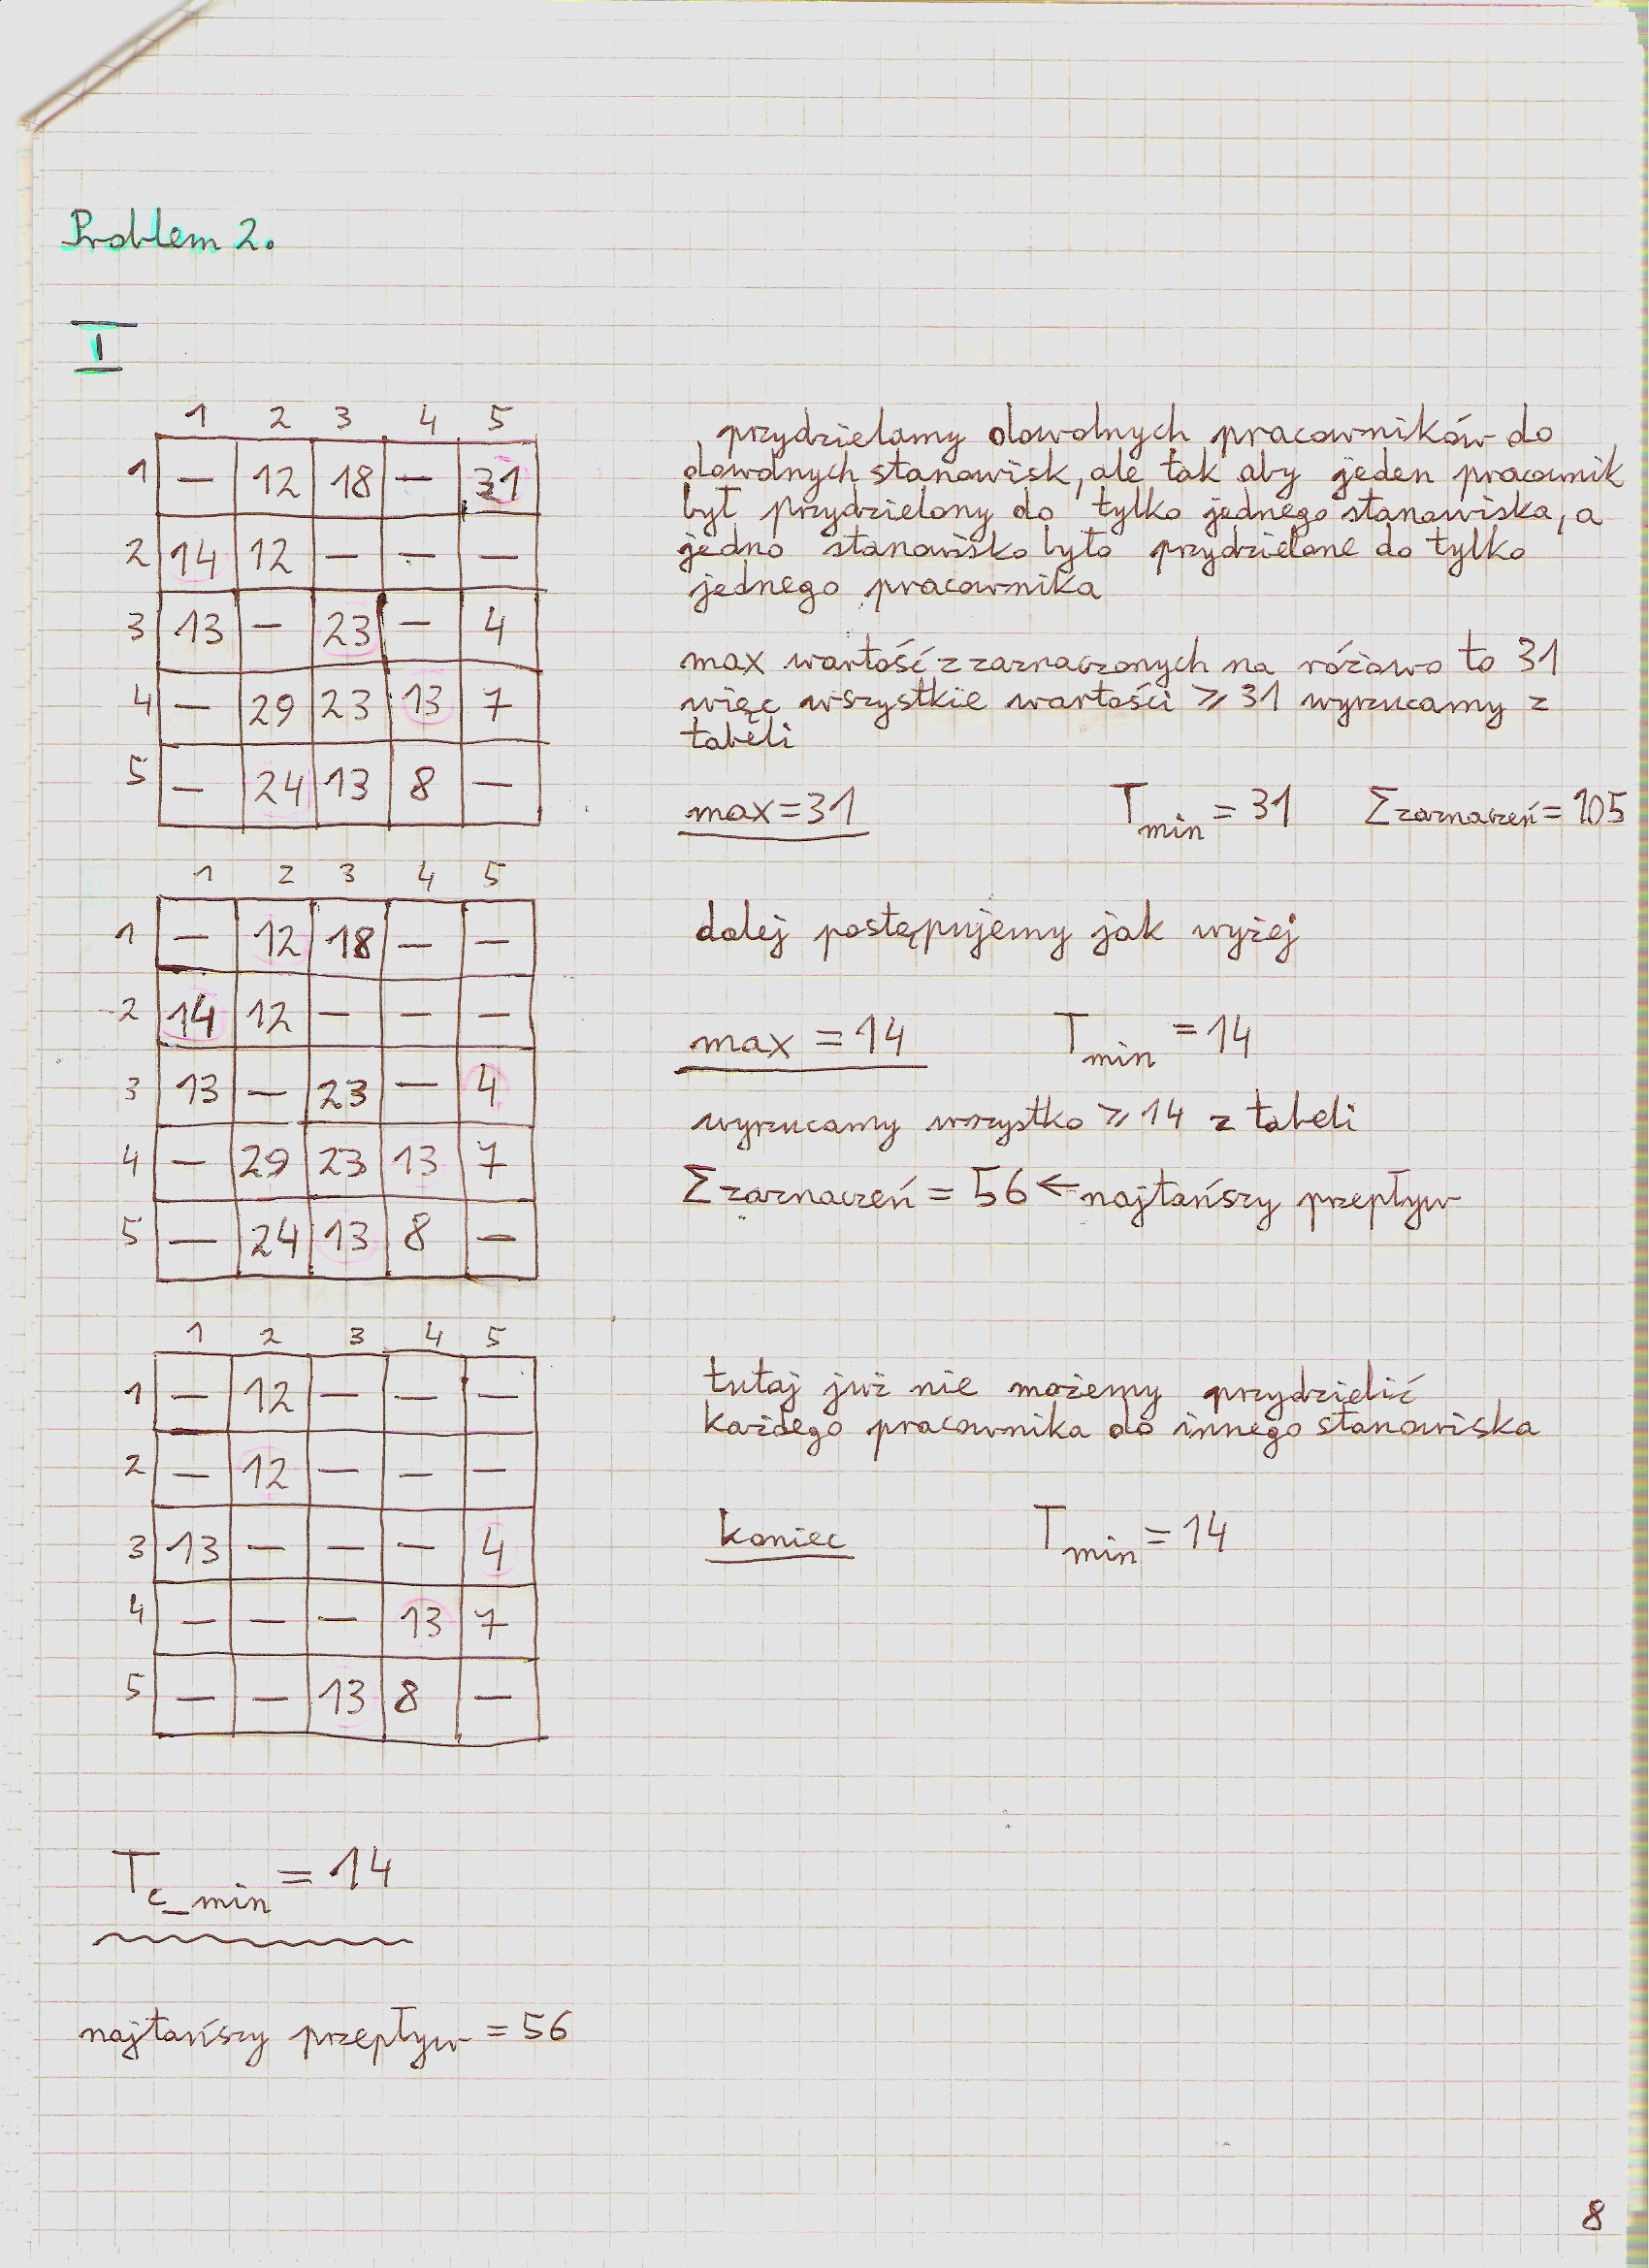 Problem 2.
I
1 2 3 4 5
1 — 12 18 — 31
2 14 12 — — —
3 13 — 23 — 4
4 — 29 23 13 7
5 — 24 13 8 —
przydzielamy dowolnych pracowników do
dowolnych stanowisk, ale tak aby jeden pracownik
był przydzielony do tylko jednego stanowiska, a
jedno stanowisko było przydzielone do tylko
jednego pracownika
max wartość z zaznaczonych na różowo to 31
więc wszystkie wartości ⩾ 31 wyrzucamy z
tabeli
max = 31 Tmin = 31 Σ zaznaczeń = 105
1 2 3 4 5
1 — 12 18 — —
2 14 12 — — —
3 13 — 23 — 4
4 — 29 23 13 7
5 — 24 13 8 —
dalej postępujemy jak wyżej
max = 14 Tmin = 14
wyrzucamy wszystko ⩾ 14 z tabeli
Σ zaznaczeń = 56 ← najtańszy przepływ
1 2 3 4 5
1 — 12 — — —
2 — 12 — — —
3 13 — — — 4
4 — — — 13 7
5 — — 13 8 —
tutaj już nie możemy przydzielić
każdego pracownika do innego stanowiska
koniec Tmin = 14
Tc_min = 14
najtańszy przepływ = 56
8